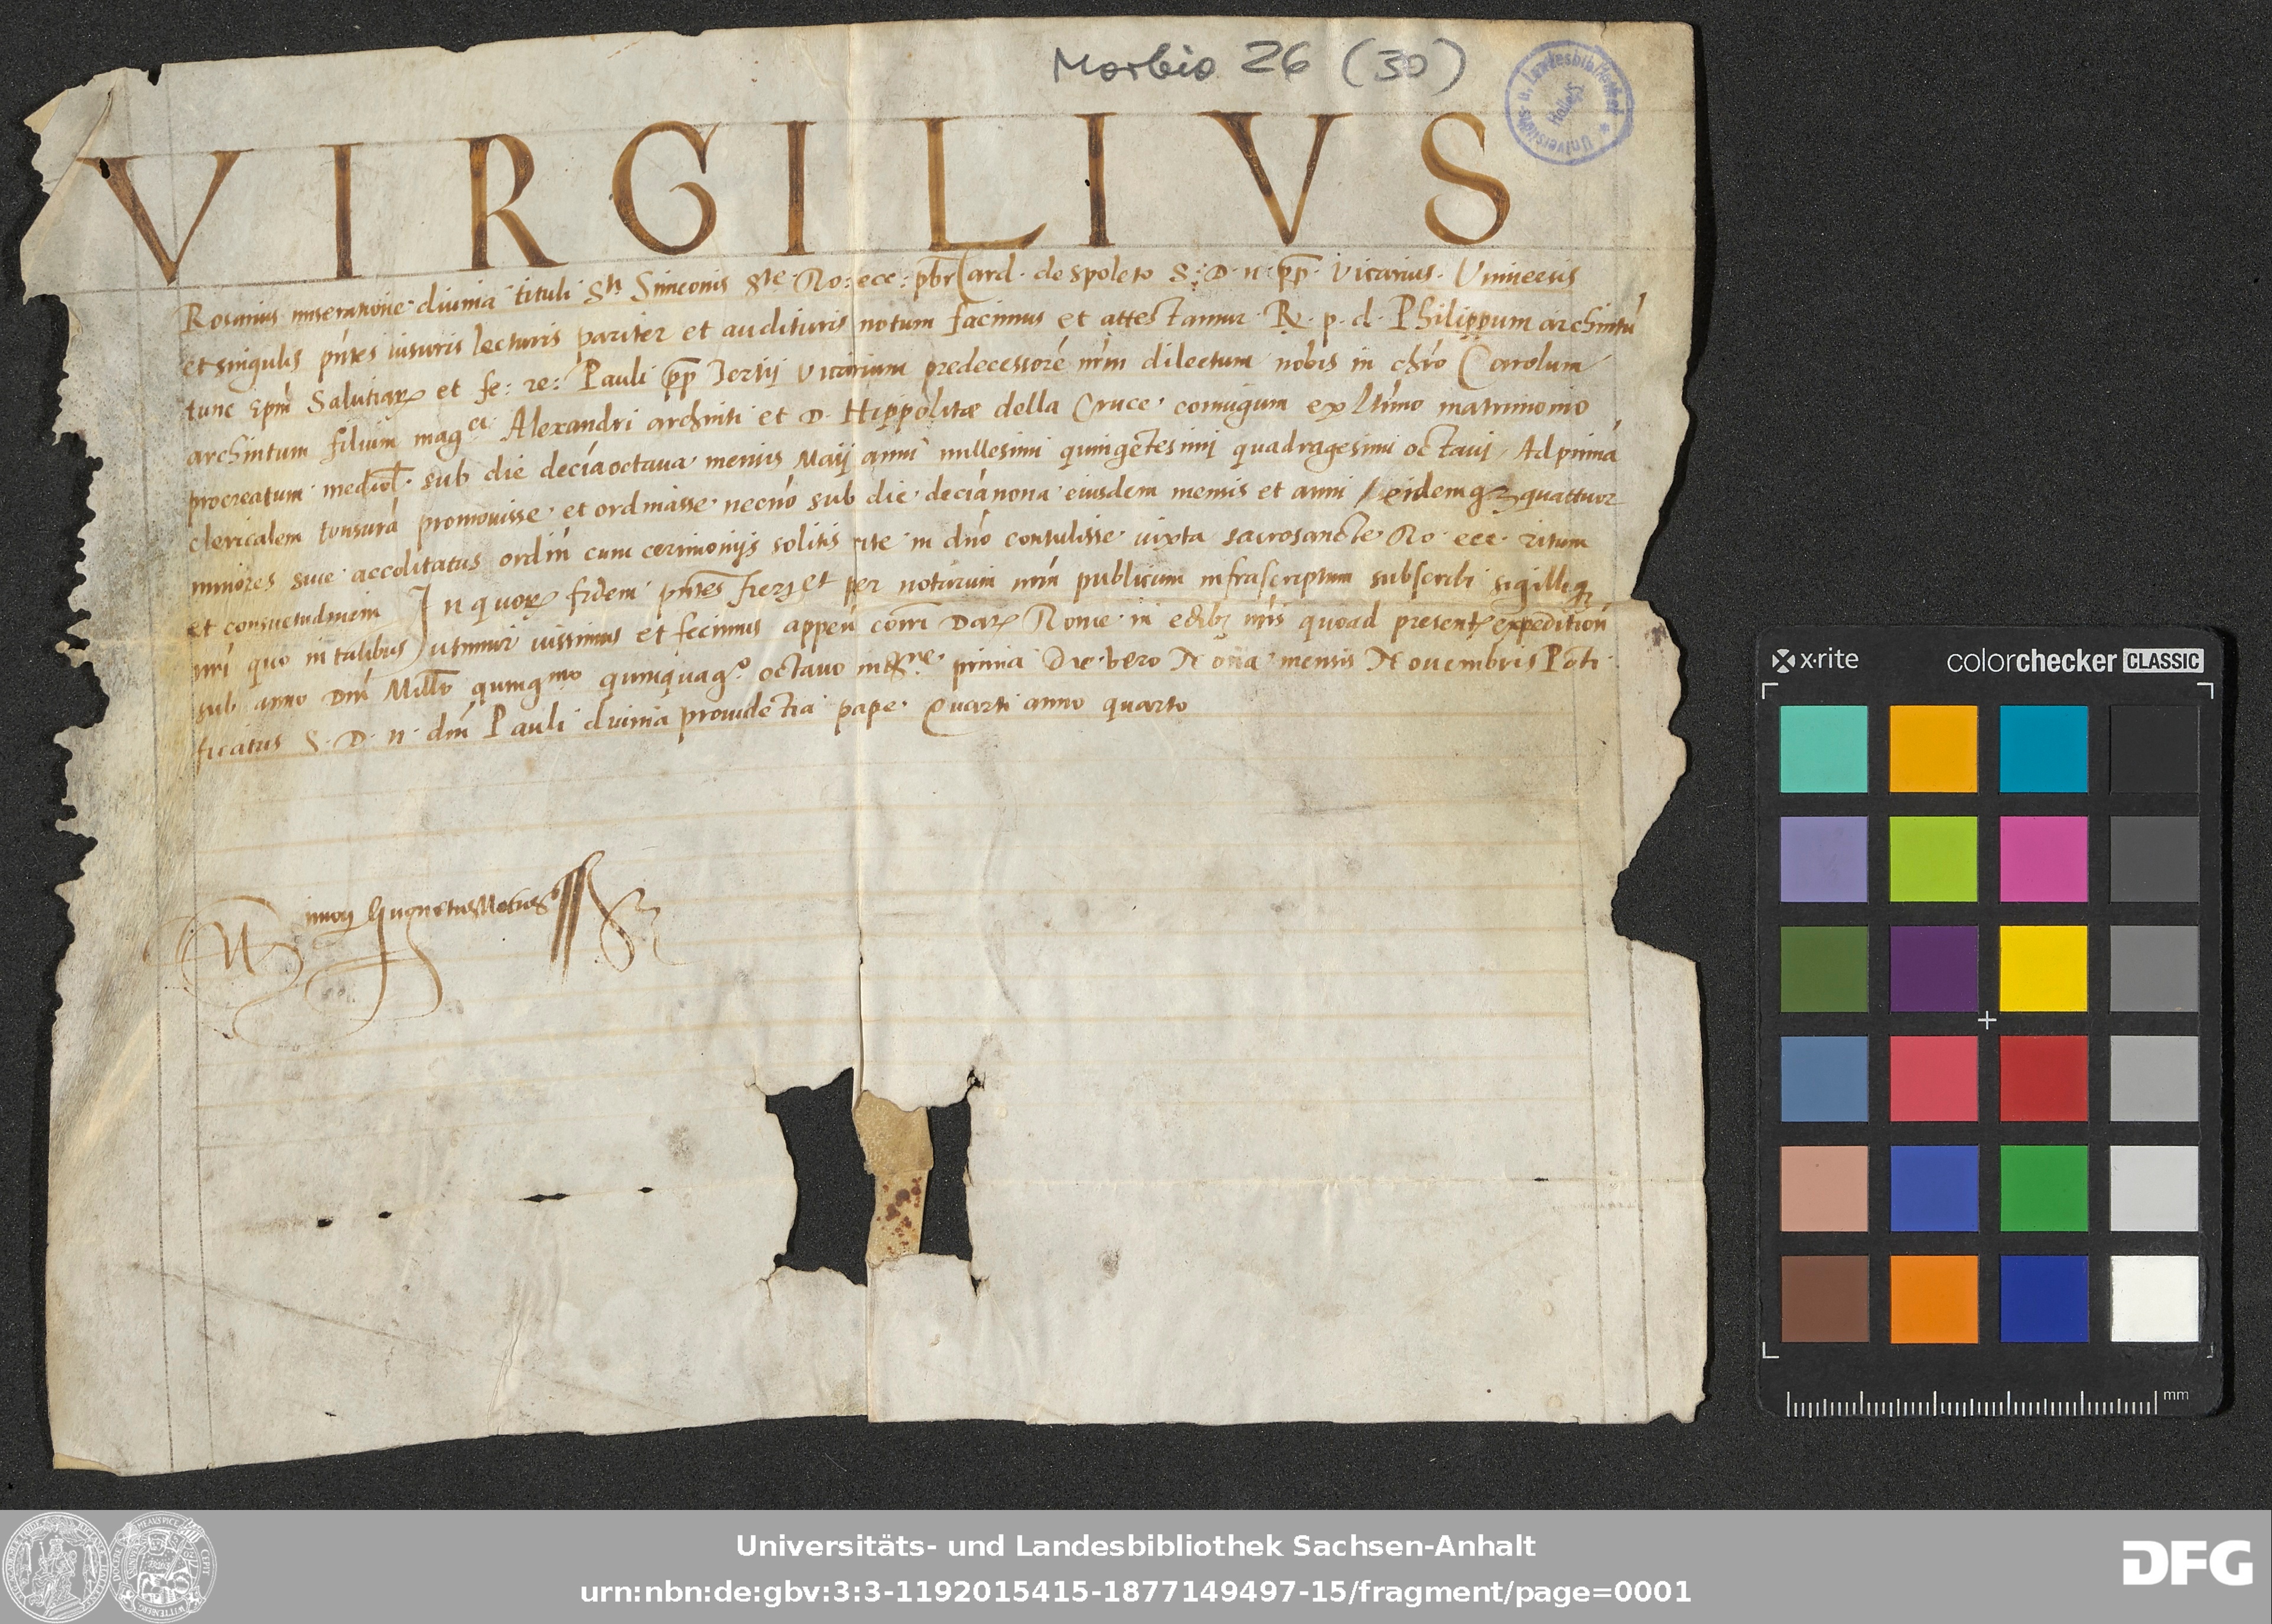 Morbio 26 (30)
Universitäts- u. Landesbibliothek * Halle/S
VIRGILIVS
Rosarius miseratione diuina tituli Sti Simeonis Ste Ro: ecc: pbr Card. de Spoleto S: D. n. pp. Vicarius. Vniuersis
et singulis pntes uisuris lecturis pariter et audituris notum facimus et attestamur R. p. d. Philippum archintu
tunc Epm Salutiar et fe: re: Pauli pp Tertij Vicarium predecessore nrm dilectum nobis in chro Carolum
archintum filium mag.ci Alexandri archinti et D. Hippolitæ della Cruce coniugum ex ltimo matrimonio
procreatum mediol. sub die decia octaua mensis Maij anni millesimi quingetesimi quadragesimi octaui Ad prima
clericalem tonsura promouisse et ordinasse necno sub die decia nona eiusdem mensis et anni eidemq quattuor
minores siue accolitatus ordin cum cerimonijs solitis rite in dno contulisse iuxta sacrosancte Ro. ecc. ritum
et consuetudinem In quor fidem pntes fieri et per notarium nrm publicum infrascriptum subscribi sigilliq
nri quo in talibus utimur iussimus et fecimus appen comi Dat Rome in edib nris quoad present expedition
sub anno Dni Millo quingmo quinquag.o octauo ind.ne prima Die vero Nona mensis Nouembris Poti
ficatus S. D. n. dni Pauli diuina prouidetia pape Quarti anno quarto
x-rite colorchecker CLASSIC
mm
Universitäts- und Landesbibliothek Sachsen-Anhalt
urn:nbn:de:gbv:3:3-1192015415-1877149497-15/fragment/page=0001
DFG